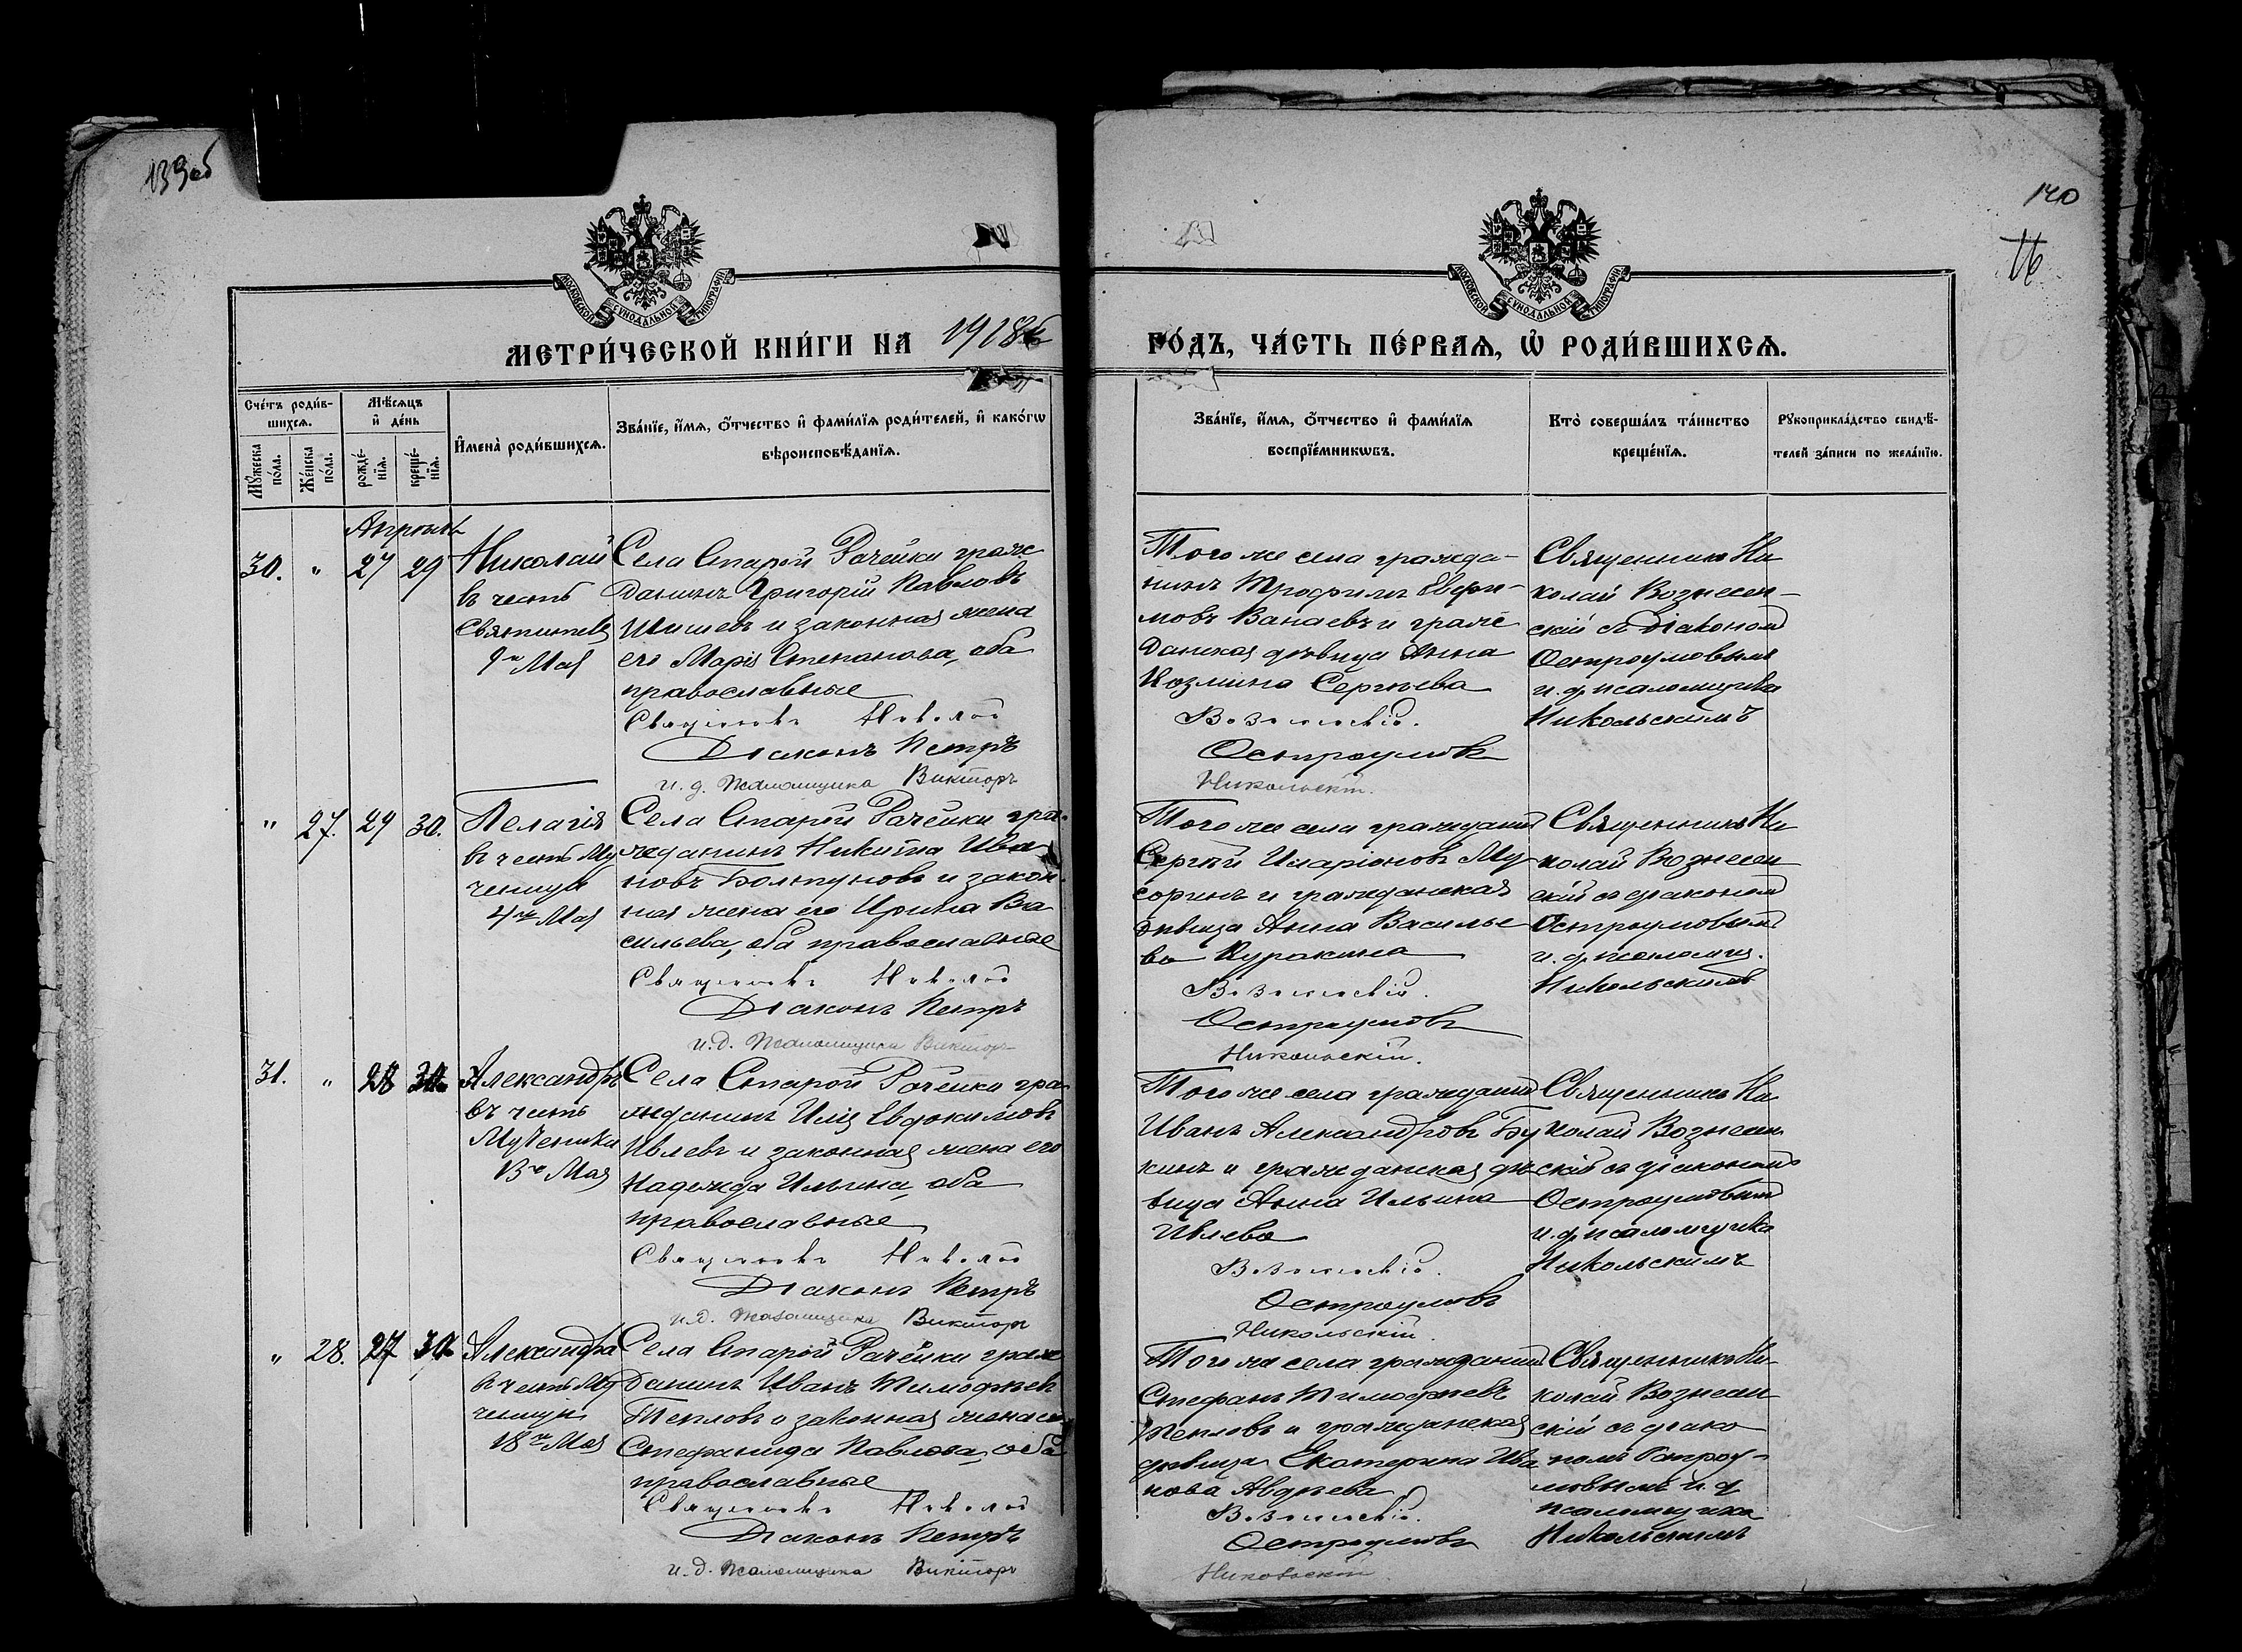 139об
140
МОСКОВСКОЙ СѴНОДАЛЬНОЙ ТИПОГРАФІИ
МОСКОВСКОЙ СѴНОДАЛЬНОЙ ТИПОГРАФІИ
МЕТРИ́ЧЕСКОЙ КНИ́ГИ НА 1918
ГО́ДЪ, ЧА́СТЬ ПЕ́РВАѦ, Ѡ҆ РОДИ́ВШИХСѦ.
Сче́тъ роди́в-
шихсѧ.
Мꙋ́жеска по́ла.
Же́нска по́ла.
Мѣ́сѧцъ
и҆ де́нь
рожде́-
нїѧ.
креще́-
нїѧ.
И҆мена̀ роди́вшихсѧ.
Зва́нїе, и҆́мѧ, ѻ҆́тчество и҆ фами́лїѧ роди́телей, и҆ како́гѡ
вѣроисповѣ́данїѧ.
Зва́нїе, и҆́мѧ, ѻ҆́тчество и҆ фами́лїѧ
воспрїе́мникѡвъ.
Кто̀ соверша́лъ та́инство
креще́нїѧ.
Рꙋкоприкла́дство свидѣ́-
телей за́писи по жела́нїю.
Апрѣль
30. " 27 29
Николай
въ честь
Святителя
9го Мая
Села Старой Рачейки граж
данинъ Григорій Павловъ
Шишевъ и законная жена
его Марія Степанова, оба
православные
Священникъ Николай
Діаконъ Петръ
и. д. псаломщика Викторъ
Того же села гражда-
нинъ Трофимъ Евфи-
мовъ Ванаевъ и граж
данская дѣвица Анна
Козмина Сергѣева
Вознесенскій.
Остроумовъ
Никольскій.
Священникъ Ни
колай Вознесен-
скій съ діакономъ
Остроумовымъ
и. д. псаломщика
Никольскимъ
" 27. 29 30.
Пелагія
въ честь Му
ченицы
4го Мая
Села Старой Рачейки гра-
жданинъ Никита Ива
новъ Болтуновъ и закон-
ная жена его Ирина Ва
сильева, оба православные
Священникъ Николай
Діаконъ Петръ
и. д. псаломщика Викторъ
Того же села гражданинъ
Сергѣй Иларіоновъ Му
соринъ и гражданская
дѣвица Анна Василье
ва Куракина
Вознесенскій.
Остроумовъ
Никольскій.
Священникъ Ни
колай Вознесен
скій съ діакономъ
Остроумовымъ
и. д. псаломщ.
Никольскимъ
31. " 28 30
Александръ
въ честь
Мученика
13го Мая
Села Старой Рачейки гра
жданинъ Илія Евдокимовъ
Ивлевъ и законная жена его
Надежда Ильина, оба
православные
Священникъ Николай
Діаконъ Петръ
и. д. псаломщика Викторъ
Того же села гражданинъ
Иванъ Александровъ Бу
кинъ и гражданская дѣ
вица Анна Ильина
Ивлева
Вознесенскій.
Остроумовъ
Никольскій.
Священникъ Ни
колай Вознесен
скій съ діакономъ
Остроумовымъ
и. д. псаломщика
Никольскимъ
" 28. 27 30
Александра
въ честь Му
ченицы
18го Мая
Села Старой Рачейки граж
данинъ Иванъ Тимофѣевъ
Тепловъ и законная жена его
Стефанида Павлова, оба
православные
Священникъ Николай
Діаконъ Петръ
и. д. псаломщика Викторъ
Того же села гражданинъ
Стефанъ Тимофѣевъ
Тепловъ и гражданская
дѣвица Екатерина Ива
нова Авдѣева
Вознесенскій.
Остроумовъ
Никольскій.
Священникъ Ни-
колай Вознесен
скій съ діако
номъ Остроу-
мовымъ и. д.
псаломщика
Никольскимъ